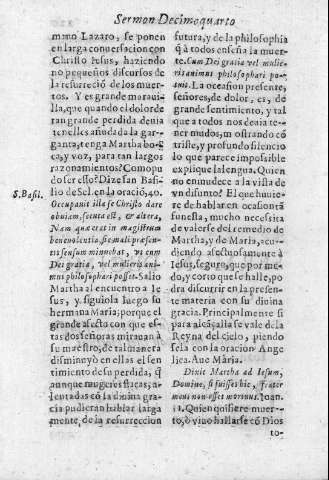 Sermon Decimoquarto
mano Lazaro, se ponen
en larga conuersacion con
Christo Iesus, haziendo
no pequeños discursos de
la resurreció de los muer-
tos. Y es grande moraui-
lla, que quando el dolor de
tan grande perdida deuia
tenelles añudada la gar-
ganta, tenga Martha bo-
ca, y voz, para tan largos
razonamientos? Como pu-
do ser esto? Dize San Basi-
lio de Sel. en la oració, 40.
S. Basil.
Occupanit illa se Christo dare
obuiem, secuta est, & altera,
Nam quæ erat in magistrum
beneuolentia, sic mali præsen-
tis sensum minuebat, vt cum
Dei gratia, vel mulieris ani-
mus philosophari posset. Salio
Martha al encuentro a Ie-
sus, y siguiola luego su
hermana Maria; porque el
grande afecto con que es-
tas dos señoras mirauan à
su maestro, de tal manera
disminuyò en ellas el sen-
timiento de su perdida, q̃
aunque mugeres flacas, a-
lentadas có la diuina gra-
cia pudieran hablar larga
mente, de la resurreccion
futura, y de la philosophia
q̃ à todos enseña la muer-
te. Cum Dei gratia vel mulie-
ris animus philosophari po-
tuit. La ocasion presente,
señores, de dolor, es, de
grande sentimiento, y tal
que a todos nos deuia te-
ner mudos, mostrando có
triste, y profundo silencio
lo que parece impossible
explique la lengua. Quien
no enmudece a la vista de
vn difunto? El que huuie-
re de hablar en ocasion tã
funesta, mucho necesita
de valerse del remedio de
Martha, y de Maria, acu-
diendo afectuosamente à
Iesus, seguro, que por me-
dio, y corto que se halle, po
dra discurrir en la presen-
te materia con su diuina
gracia. Principalmente si
para alcãçalla se vale de la
Reyna del cielo, piendo
sela con la oracion Ange
lica. Aue Maria.
Dixit Martha ad Iesum,
Domine, si fuisses hic, frater
meus non esset mortuus. Ioan.
11. Quien quisiere muer-
to, ò viuo hallarse có Dios
to-